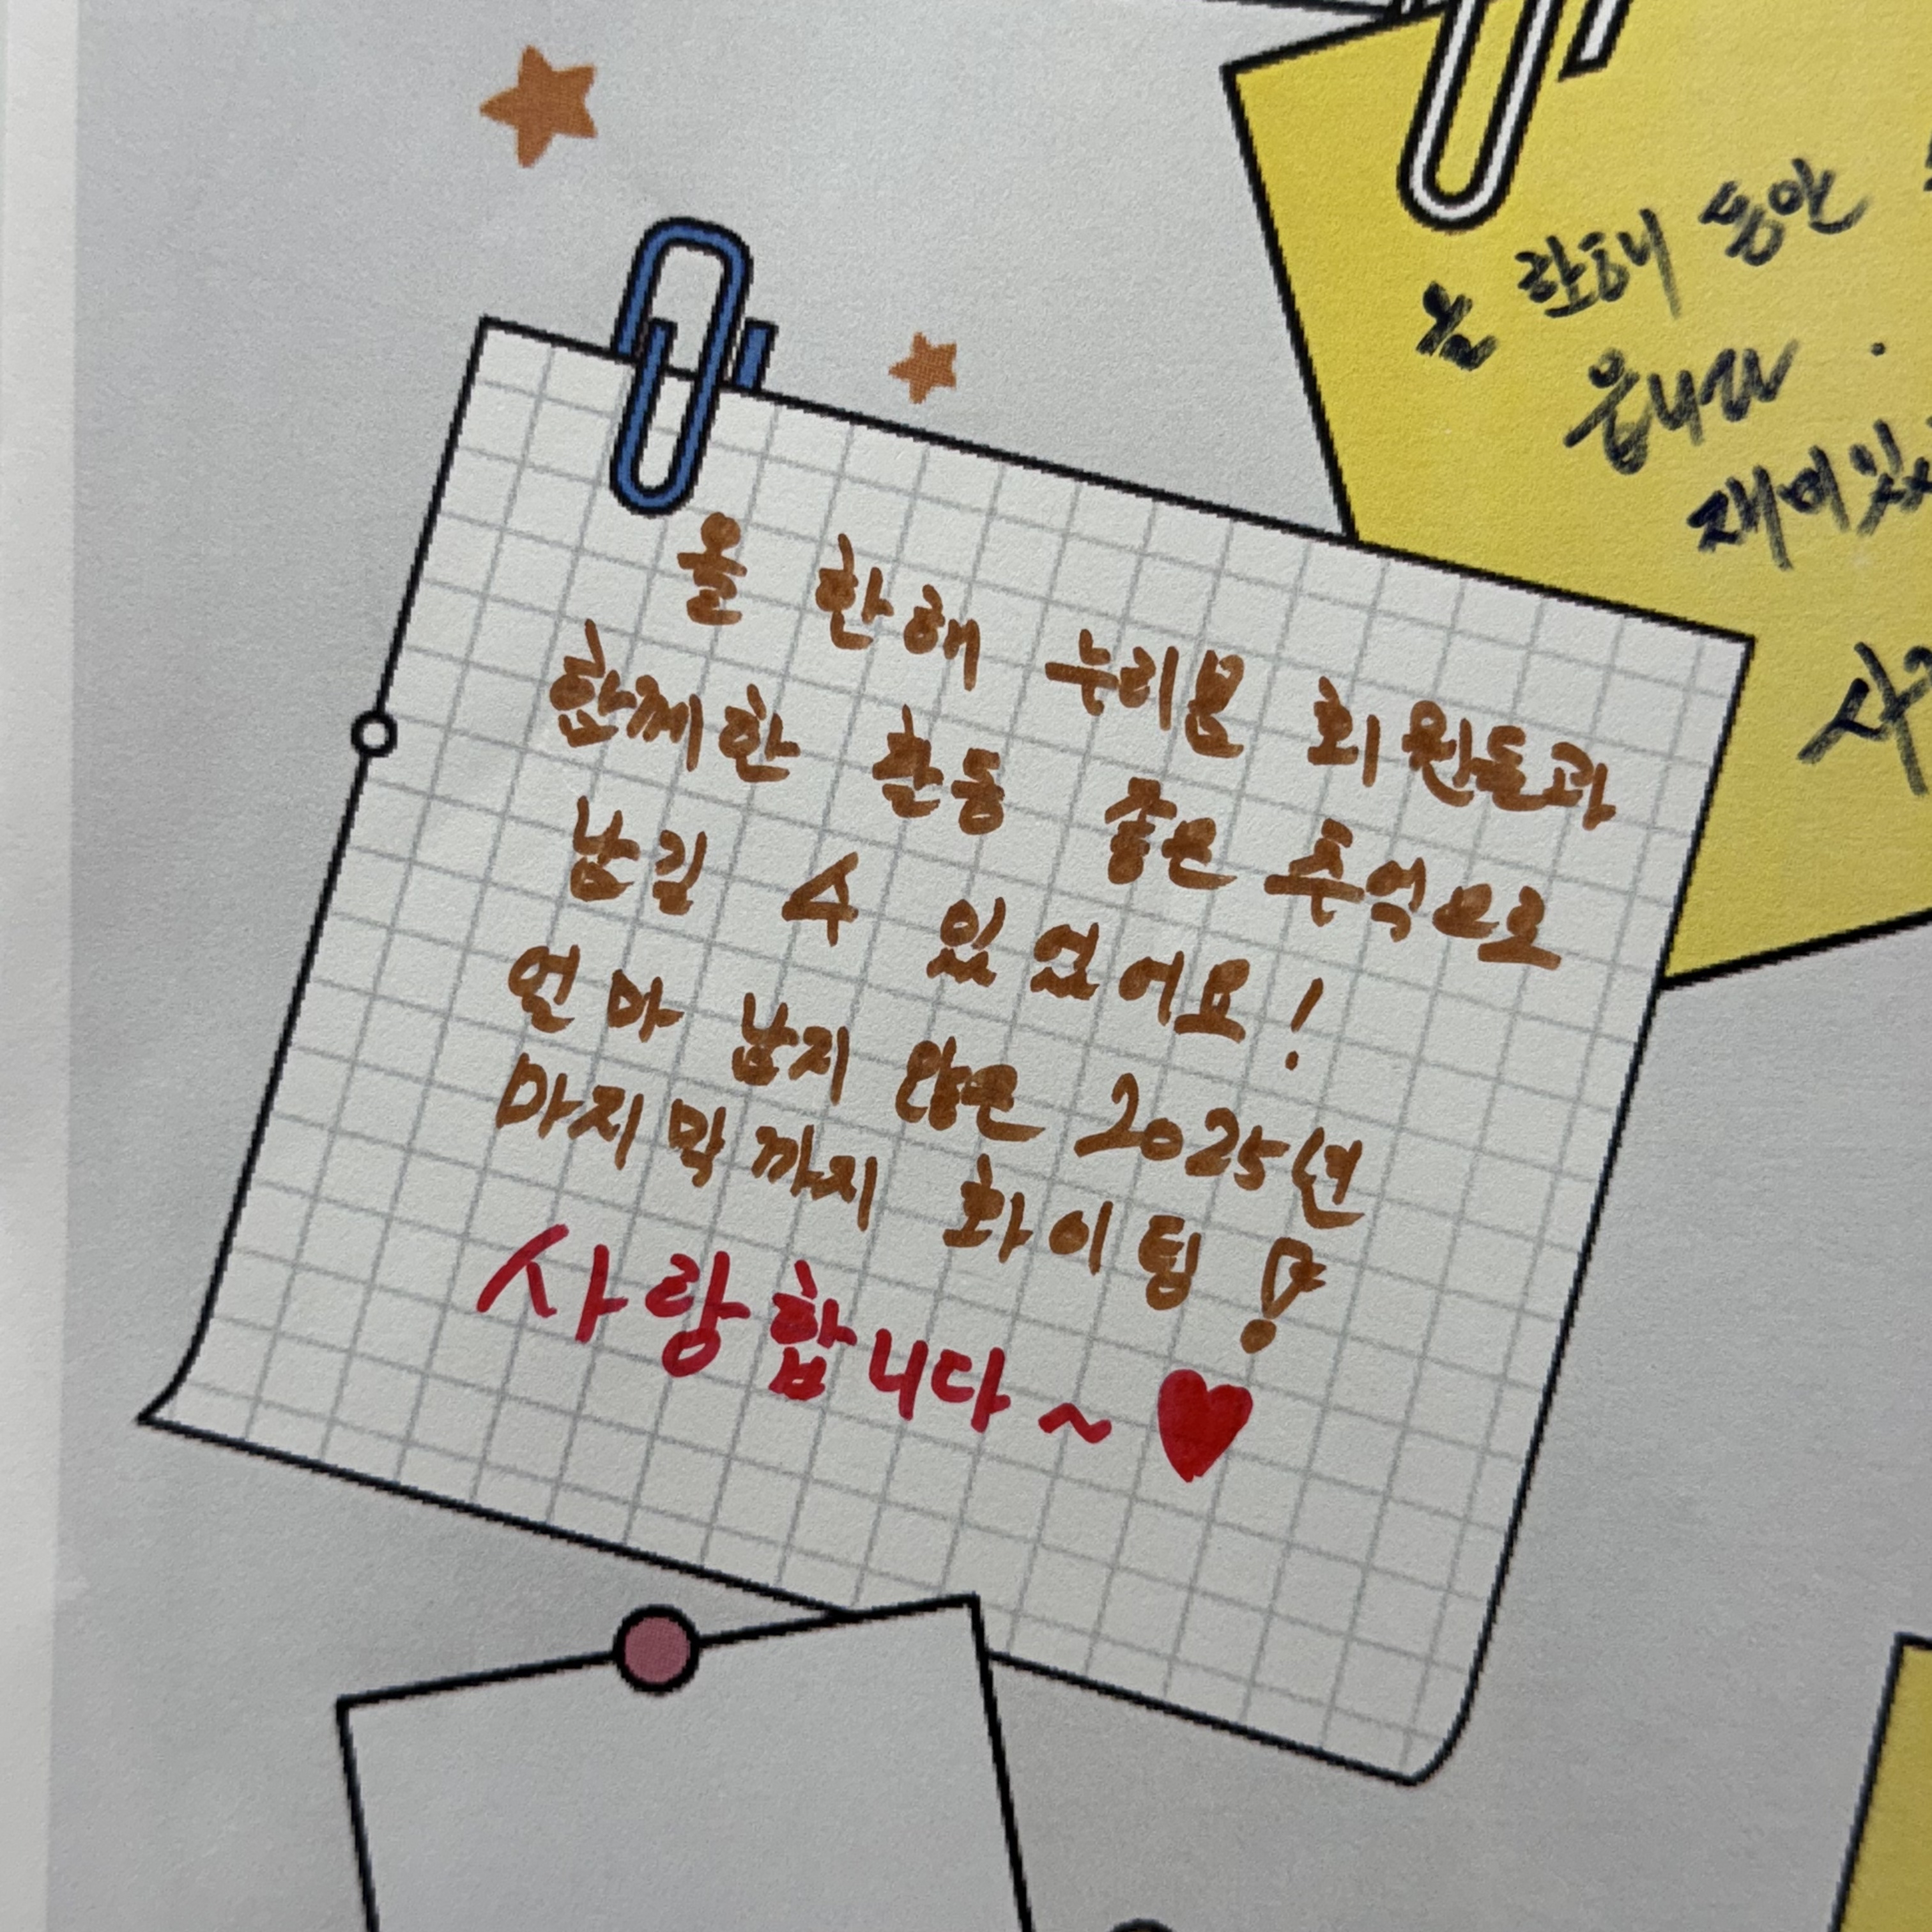 올 한해 누리봄 회원들과
함께한 활동 좋은 추억으로
남길 수 있었어요!
얼마 남지 않은 2025년
마지막까지 화이팅!
사랑합니다~♥
올 한해 동안
재미있